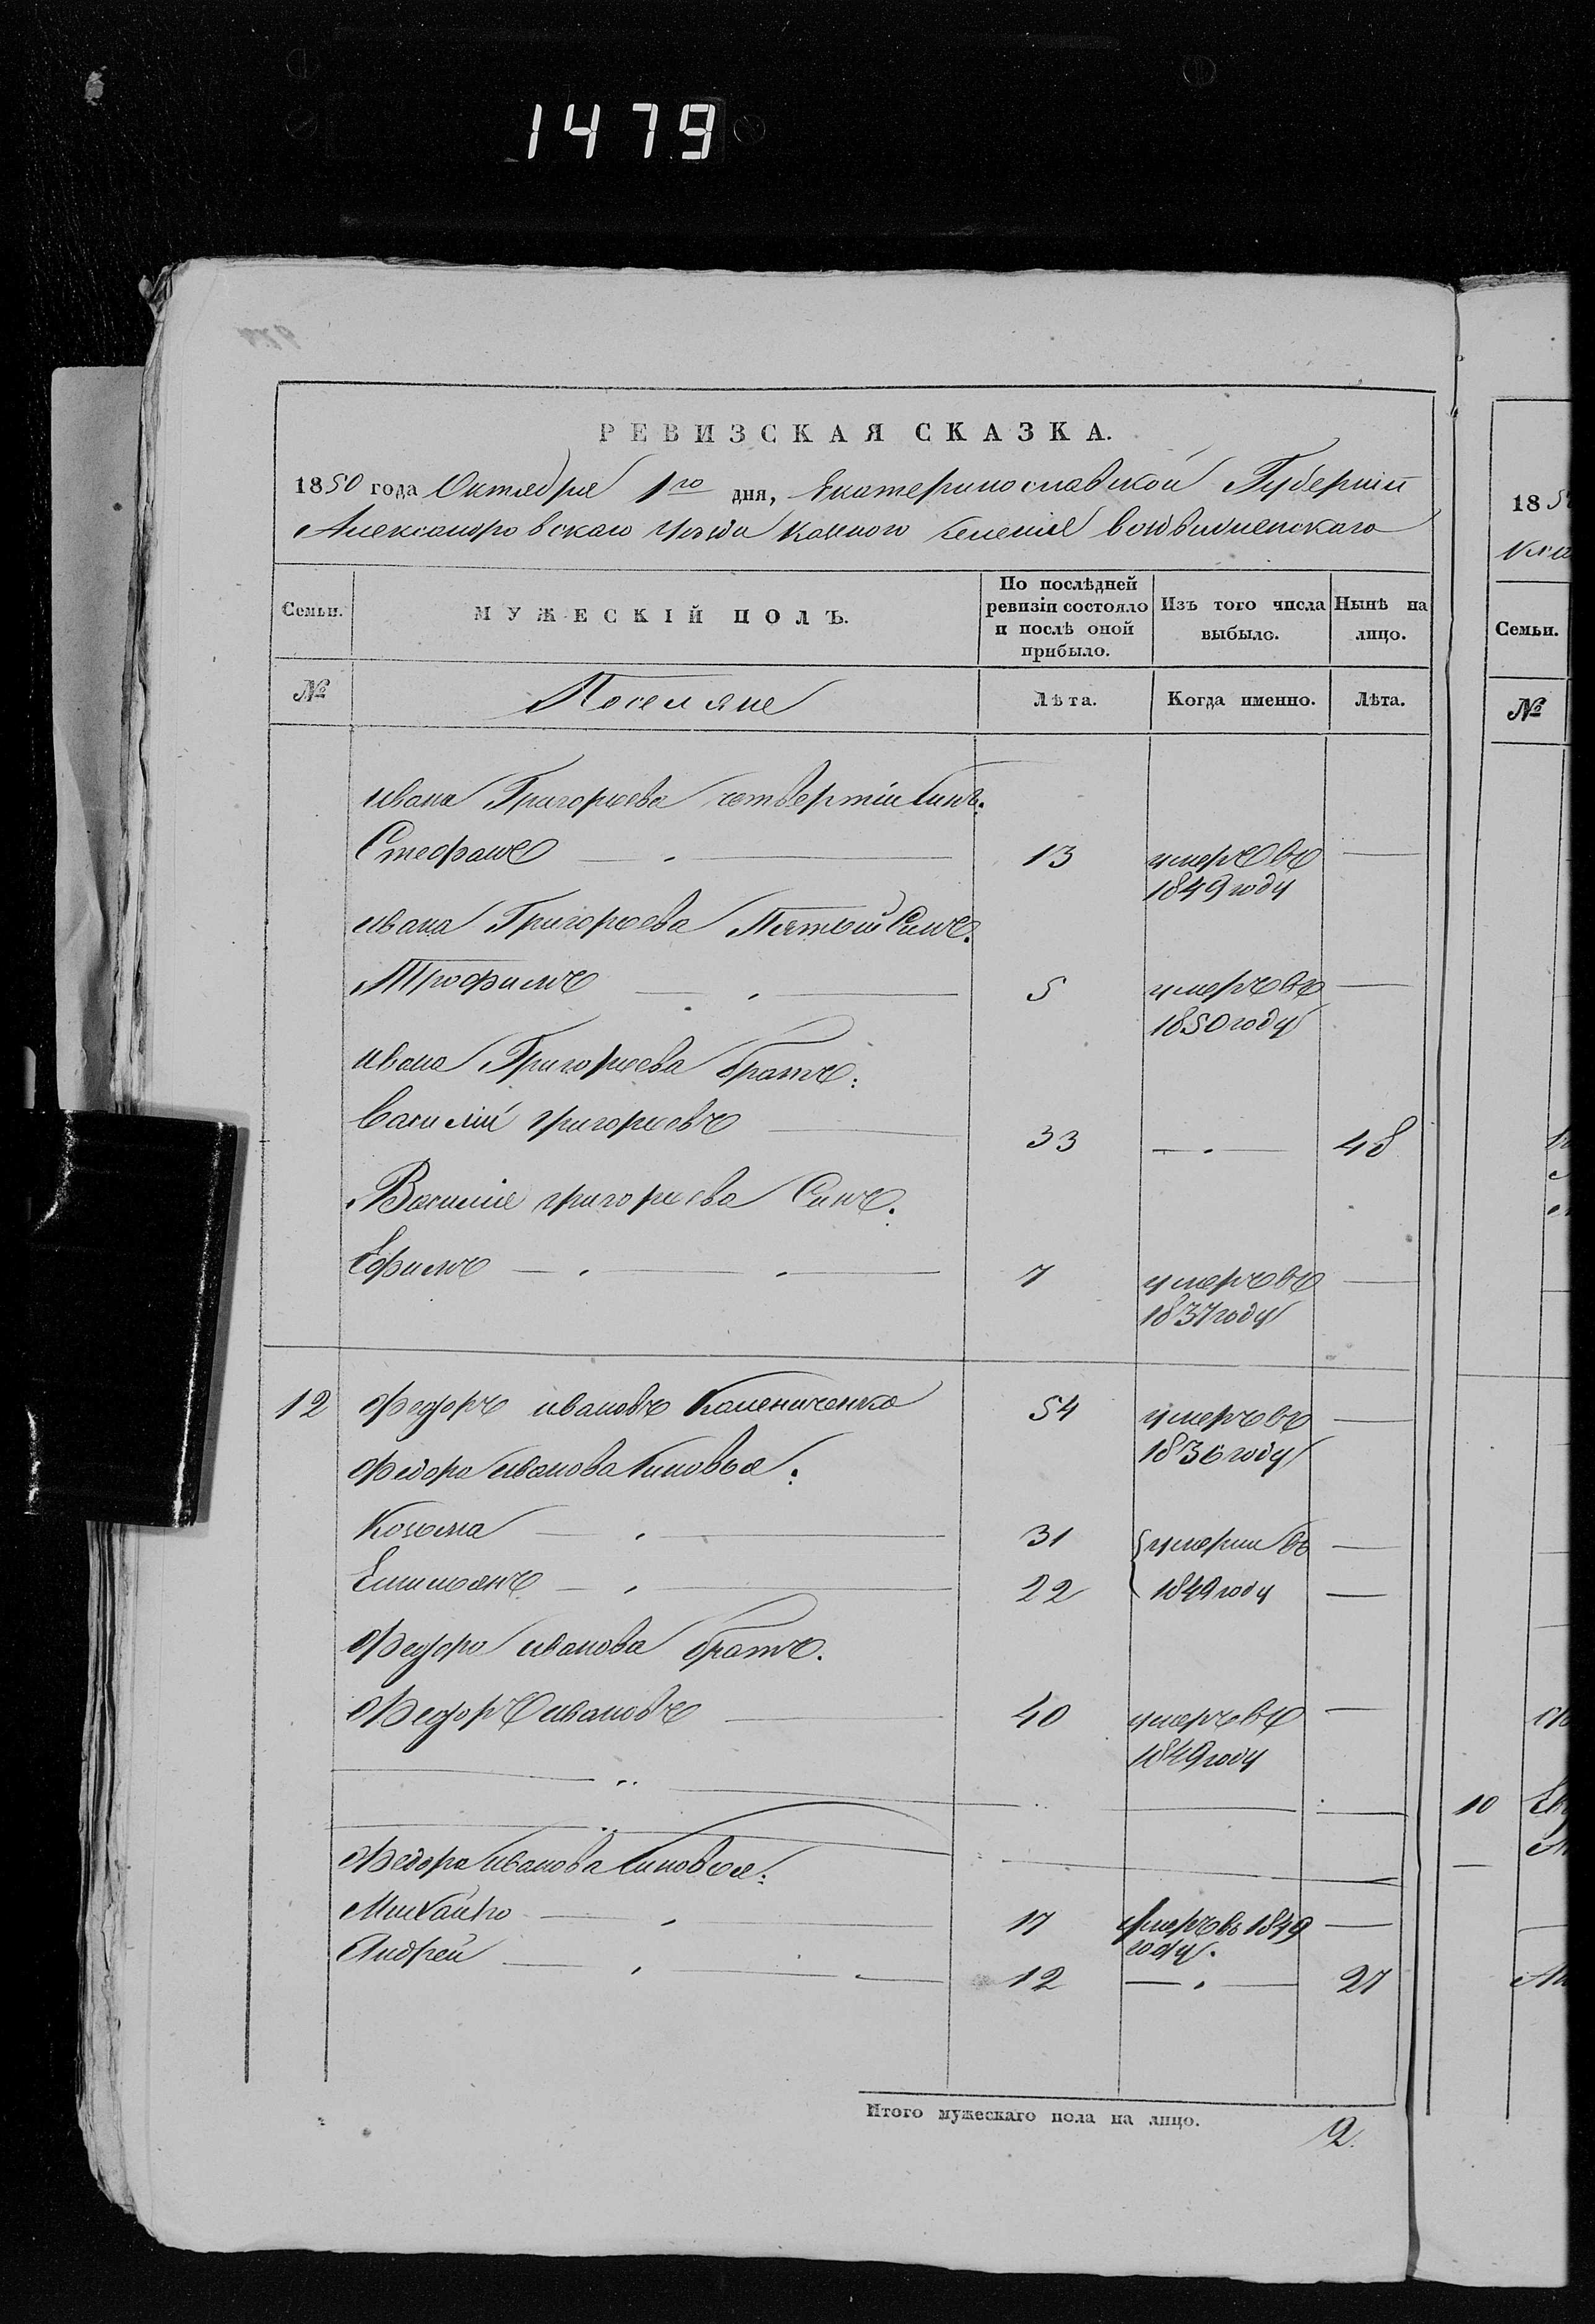 1479
РЕВИЗСКАЯ СКАЗКА.
1850 года Октября 1го дня, Екатеринославской Губернии
Александровского уезда казного селения воздвиженского
Семьи.
МУЖЕСКІЙ ПОЛЪ.
По послѣдней ревизіи состояло и послѣ оной прибыло.
Изъ того числа выбыло.
Нынѣ на лицо.
№
Поселяне
Лѣта.
Когда именно.
Лѣта.
ивана Григорьева четвертіи Синъ.
Стефанъ — 13 умеръ въ —
1849 году
ивана Григорьева Пятый Синъ.
Трофимъ — 5 умеръ въ —
1850 году
ивана Григорьева братъ:
Василій григорьевъ — 33 — 48
Василія григорьева Синъ.
Ефимъ — 7 умеръ въ —
1837 году
12 Федоръ ивановъ 54 умеръ въ —
1836 году
Федора иванова Синовья:
Козьма — 31 умерли въ —
Емильянъ — 22 1849 году —
Федора иванова братъ.
Федоръ ивановъ — 40 умеръ въ —
1849 году
Федора иванова Синовья:
Михайло — 17 умеръ въ 1849 —
году.
Андрей — 12 — 27
Итого мужескаго пола на лицо. 2.
18
Семьи.
№
10